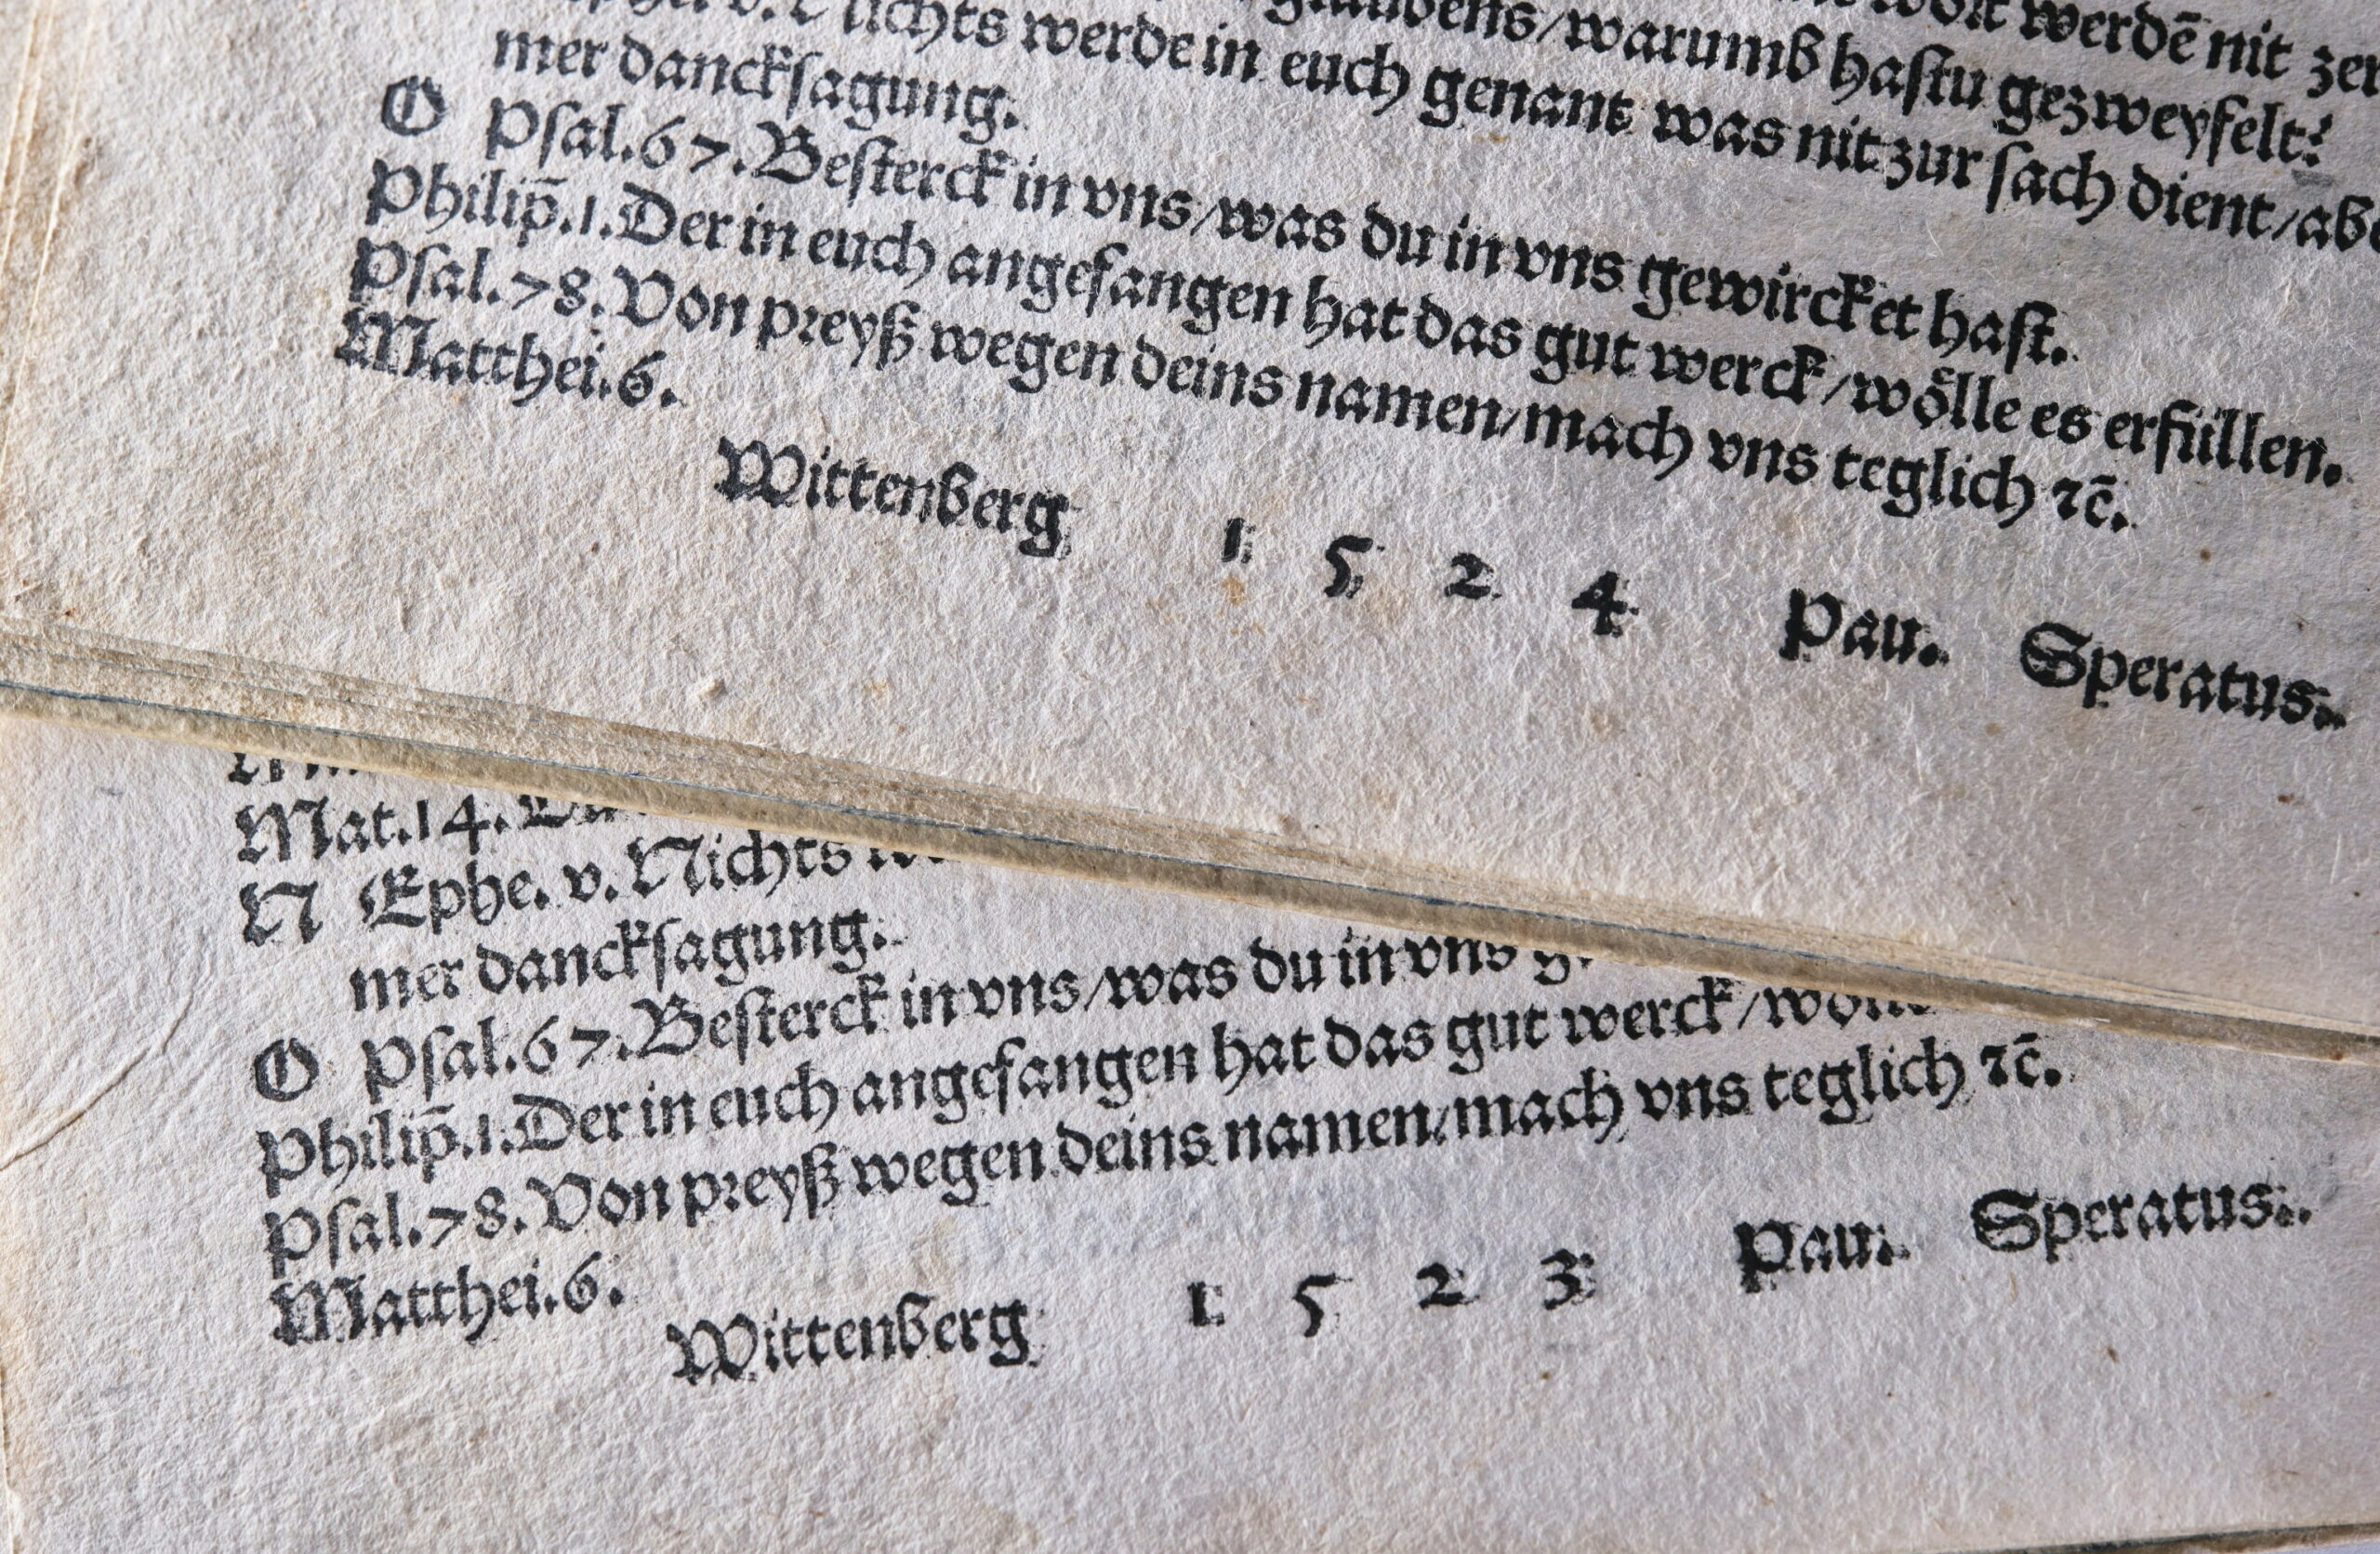 wort werdē nit zer
glaubens/warumb hastu gezweyfelt?
v. Nichts werde in euch genant was nit zur sach dient/abe
mer danckſagung.
O Pſal.67.Beſterck in vns/was du in vns gewircket haſt.
Philip̄.1.Der in euch angefangen hat das gut werck/woͤlle es erfüllen.
Pſal.78.Von preyß wegen deins namen/mach vns teglich ⁊c̄.
Matthei.6.
Wittenberg 1 5 2 4 Pau. Speratus.
Mat.14. Du
N Ephe. v. Nichts
mer danckſagung.
O Pſal.67.Beſterck in vns/was du in vns
Philip̄.1.Der in euch angefangen hat das gut werck/wöll
Pſal.78.Von preyß wegen deins namen/mach vns teglich ⁊c̄.
Matthei.6.
Wittenberg 1 5 2 3 Pau. Speratus.